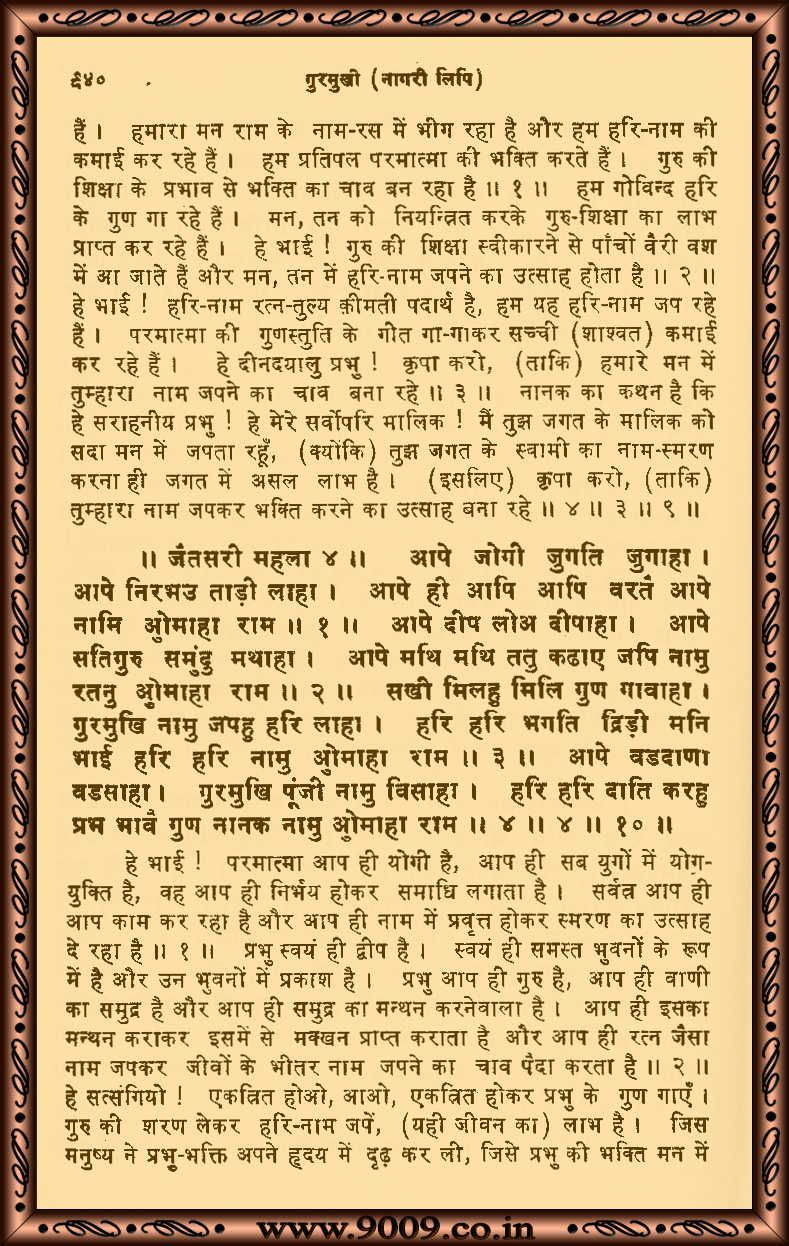 ९४०
गुरमुखी (नागरी लिपि)
हैं। हमारा मन राम के नाम-रस में भीग रहा है और हम हरि-नाम की
कमाई कर रहे हैं। हम प्रतिपल परमात्मा की भक्ति करते हैं। गुरु की
शिक्षा के प्रभाव से भक्ति का चाव बन रहा है॥ १॥ हम गोविन्द हरि
के गुण गा रहे हैं। मन, तन को नियन्त्रित करके गुरु-शिक्षा का लाभ
प्राप्त कर रहे हैं। हे भाई! गुरु की शिक्षा स्वीकारने से पाँचों वैरी वश
में आ जाते हैं और मन, तन में हरि-नाम जपने का उत्साह होता है॥ २॥
हे भाई! हरि-नाम रत्न-तुल्य क़ीमती पदार्थ है, हम यह हरि-नाम जप रहे
हैं। परमात्मा की गुणस्तुति के गीत गा-गाकर सच्ची (शाश्वत) कमाई
कर रहे हैं। हे दीनदयालु प्रभु! कृपा करो, (ताकि) हमारे मन में
तुम्हारा नाम जपने का चाव बना रहे॥ ३॥ नानक का कथन है कि
हे सराहनीय प्रभु! हे मेरे सर्वोपरि मालिक! मैं तुझ जगत के मालिक को
सदा मन में जपता रहूँ, (क्योंकि) तुझ जगत के स्वामी का नाम-स्मरण
करना ही जगत में असल लाभ है। (इसलिए) कृपा करो, (ताकि)
तुम्हारा नाम जपकर भक्ति करने का उत्साह बना रहे॥ ४॥ ३॥ ९॥
॥ जैतसरी महला ४॥ आपे जोगी जुगति जुगाहा।
आपे निरभउ ताड़ी लाहा। आपे ही आपि आपि वरतै आपे
नामि ओुमाहा राम॥ १॥ आपे दीप लोअ दीपाहा। आपे
सतिगुरु समुंदु मथाहा। आपे मथि मथि ततु कढाए जपि नामु
रतनु ओुमाहा राम॥ २॥ सखी मिलहु मिलि गुण गावाहा।
गुरमुखि नामु जपहु हरि लाहा। हरि हरि भगति द्रिड़ी मनि
भाई हरि हरि नामु ओुमाहा राम॥ ३॥ आपे वडदाणा
वडसाहा। गुरमुखि पूंजी नामु विसाहा। हरि हरि दाति करहु
प्रभ भावै गुण नानक नामु ओुमाहा राम॥ ४॥ ४॥ १०॥
हे भाई! परमात्मा आप ही योगी है, आप ही सब युगों में योग-
युक्ति है, वह आप ही निर्भय होकर समाधि लगाता है। सर्वत्र आप ही
आप काम कर रहा है और आप ही नाम में प्रवृत्त होकर स्मरण का उत्साह
दे रहा है॥ १॥ प्रभु स्वयं ही द्वीप है। स्वयं ही समस्त भुवनों के रूप
में है और उन भुवनों में प्रकाश है। प्रभु आप ही गुरु है, आप ही वाणी
का समुद्र है और आप ही समुद्र का मन्थन करनेवाला है। आप ही इसका
मन्थन कराकर इसमें से मक्खन प्राप्त कराता है और आप ही रत्न जैसा
नाम जपकर जीवों के भीतर नाम जपने का चाव पैदा करता है॥ २॥
हे सत्संगियो! एकत्रित होओ, आओ, एकत्रित होकर प्रभु के गुण गाएँ।
गुरु की शरण लेकर हरि-नाम जपें, (यही जीवन का) लाभ है। जिस
मनुष्य ने प्रभु-भक्ति अपने हृदय में दृढ़ कर ली, जिसे प्रभु की भक्ति मन में
www.9009.co.in